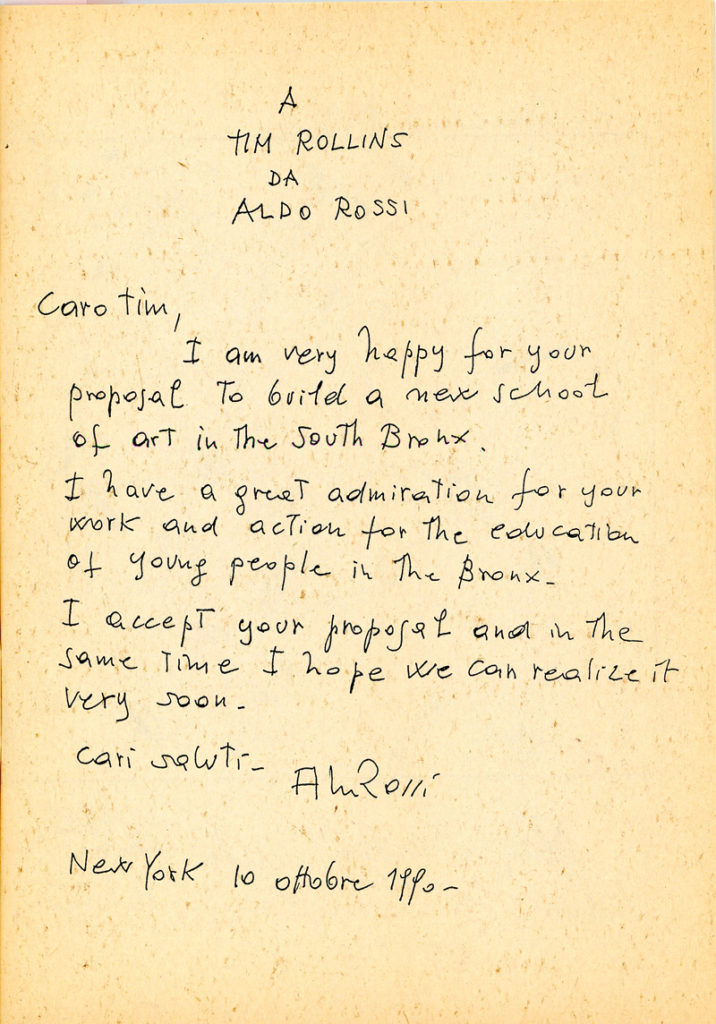 A
TIM ROLLINS
DA
ALDO ROSSI
Caro Tim,
I am very happy for your
proposal to build a new school
of art in the South Bronx.
I have a great admiration for your
work and action for the education
of young people in the Bronx_
I accept your proposal and in the
same time I hope we can realize it
very soon_
Cari saluti_
Aldo Rossi
New York 10 ottobre 1990_